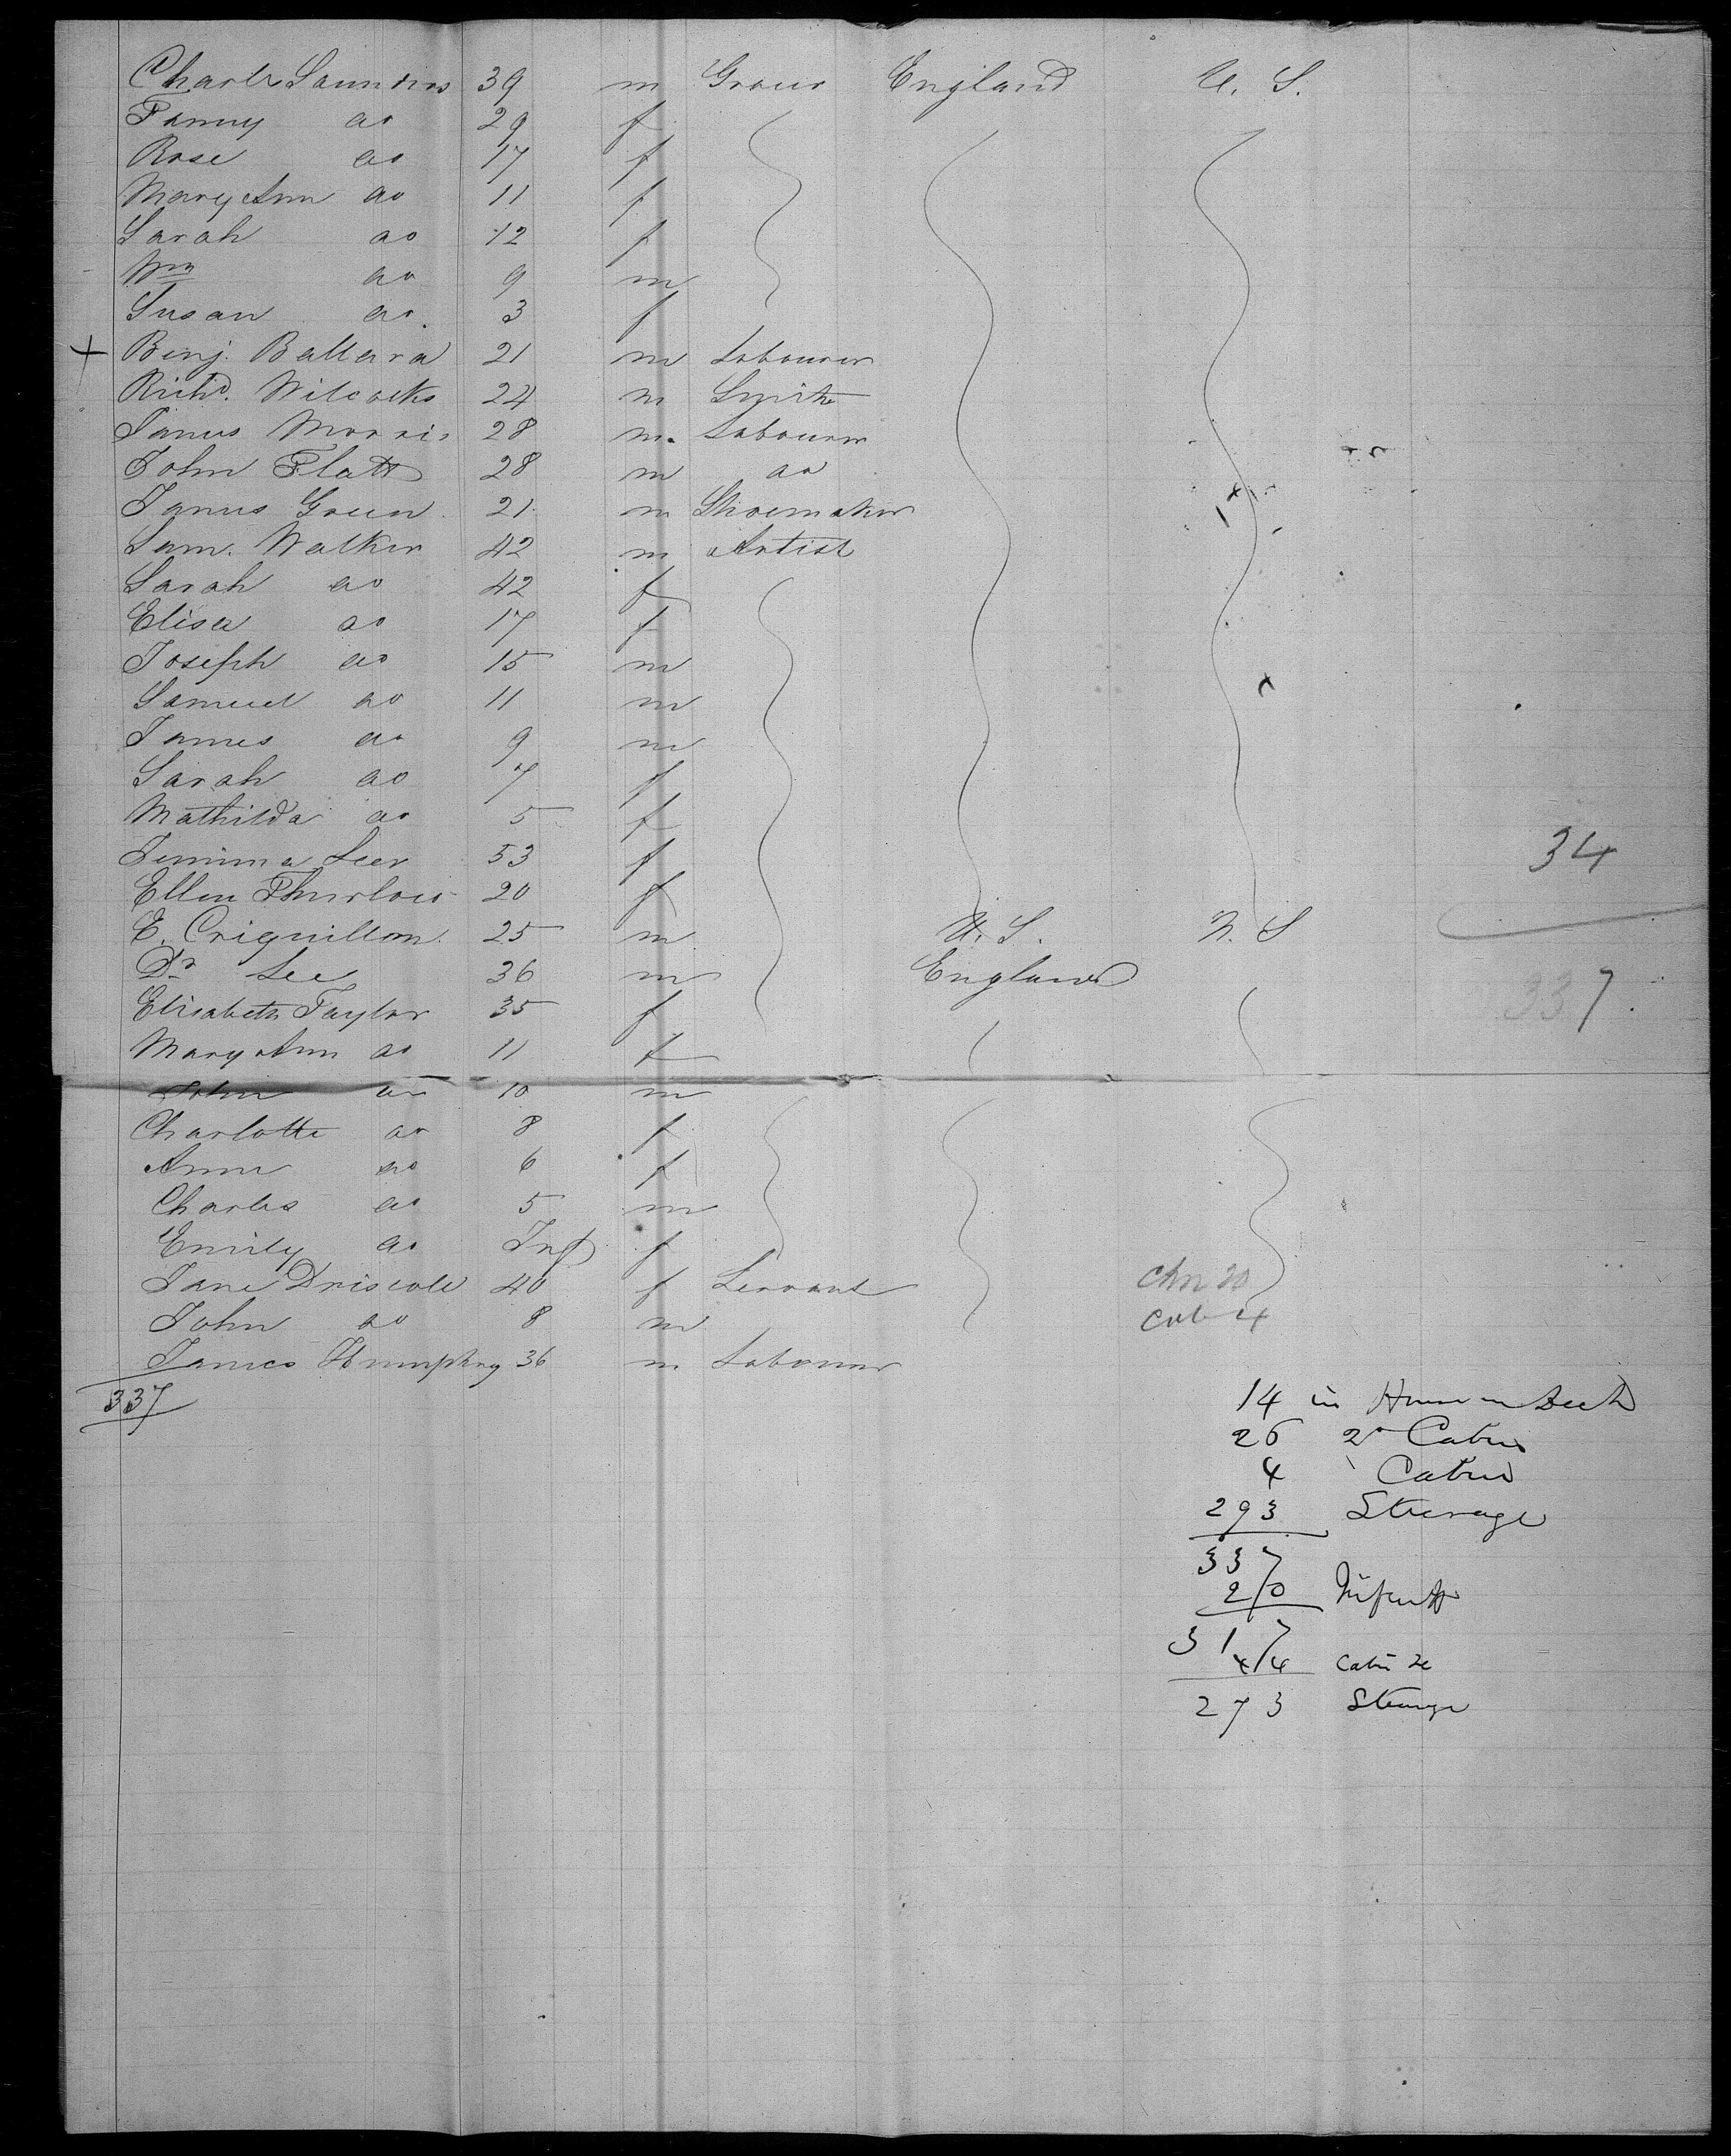 Charls Saunders 39 m Grocer England U. S.
Fanny do 29 f
Rose do 17 f
Mary Ann do 11 f
Sarah do 12 f
Wm do 9 m
Susan do. 3 f
+ Benj. Ballard 21 m Labourer
Richd. Wilcocks 24 m Smith
James Morris 28 m. Labourer
John Platt 28 m do
James Green 21 m Shoemaker
Sam. Walker 42 m Artist
Sarah do 42 f
Elisa do 17 f
Joseph do 15 m
Samuel do 11 m
James do 9 m
Sarah do 7 f
Mathilda do 5 f
Jemima Leer 53 f 34
Ellen Thurlow 20 f
E. Criquillom. 25 m U. S. U. S
Dr Lee 36 m England
Elisabeth Taylor 35 f 337
Mary Ann do 11 f
John do 10 m
Charlotte do 8 f
Anne do 6 f
Charles do 5 m
Emily do Inf f
Jane Driscole 40 f Servant Chn 20
John do 8 m Cab 4
James Humphry 36 m Labourer
337 14 in House on Deck
26 2d Cabin
4 Cabin
293 Steerage
337
20 Infants
317
44 Cabin
273 Steerage